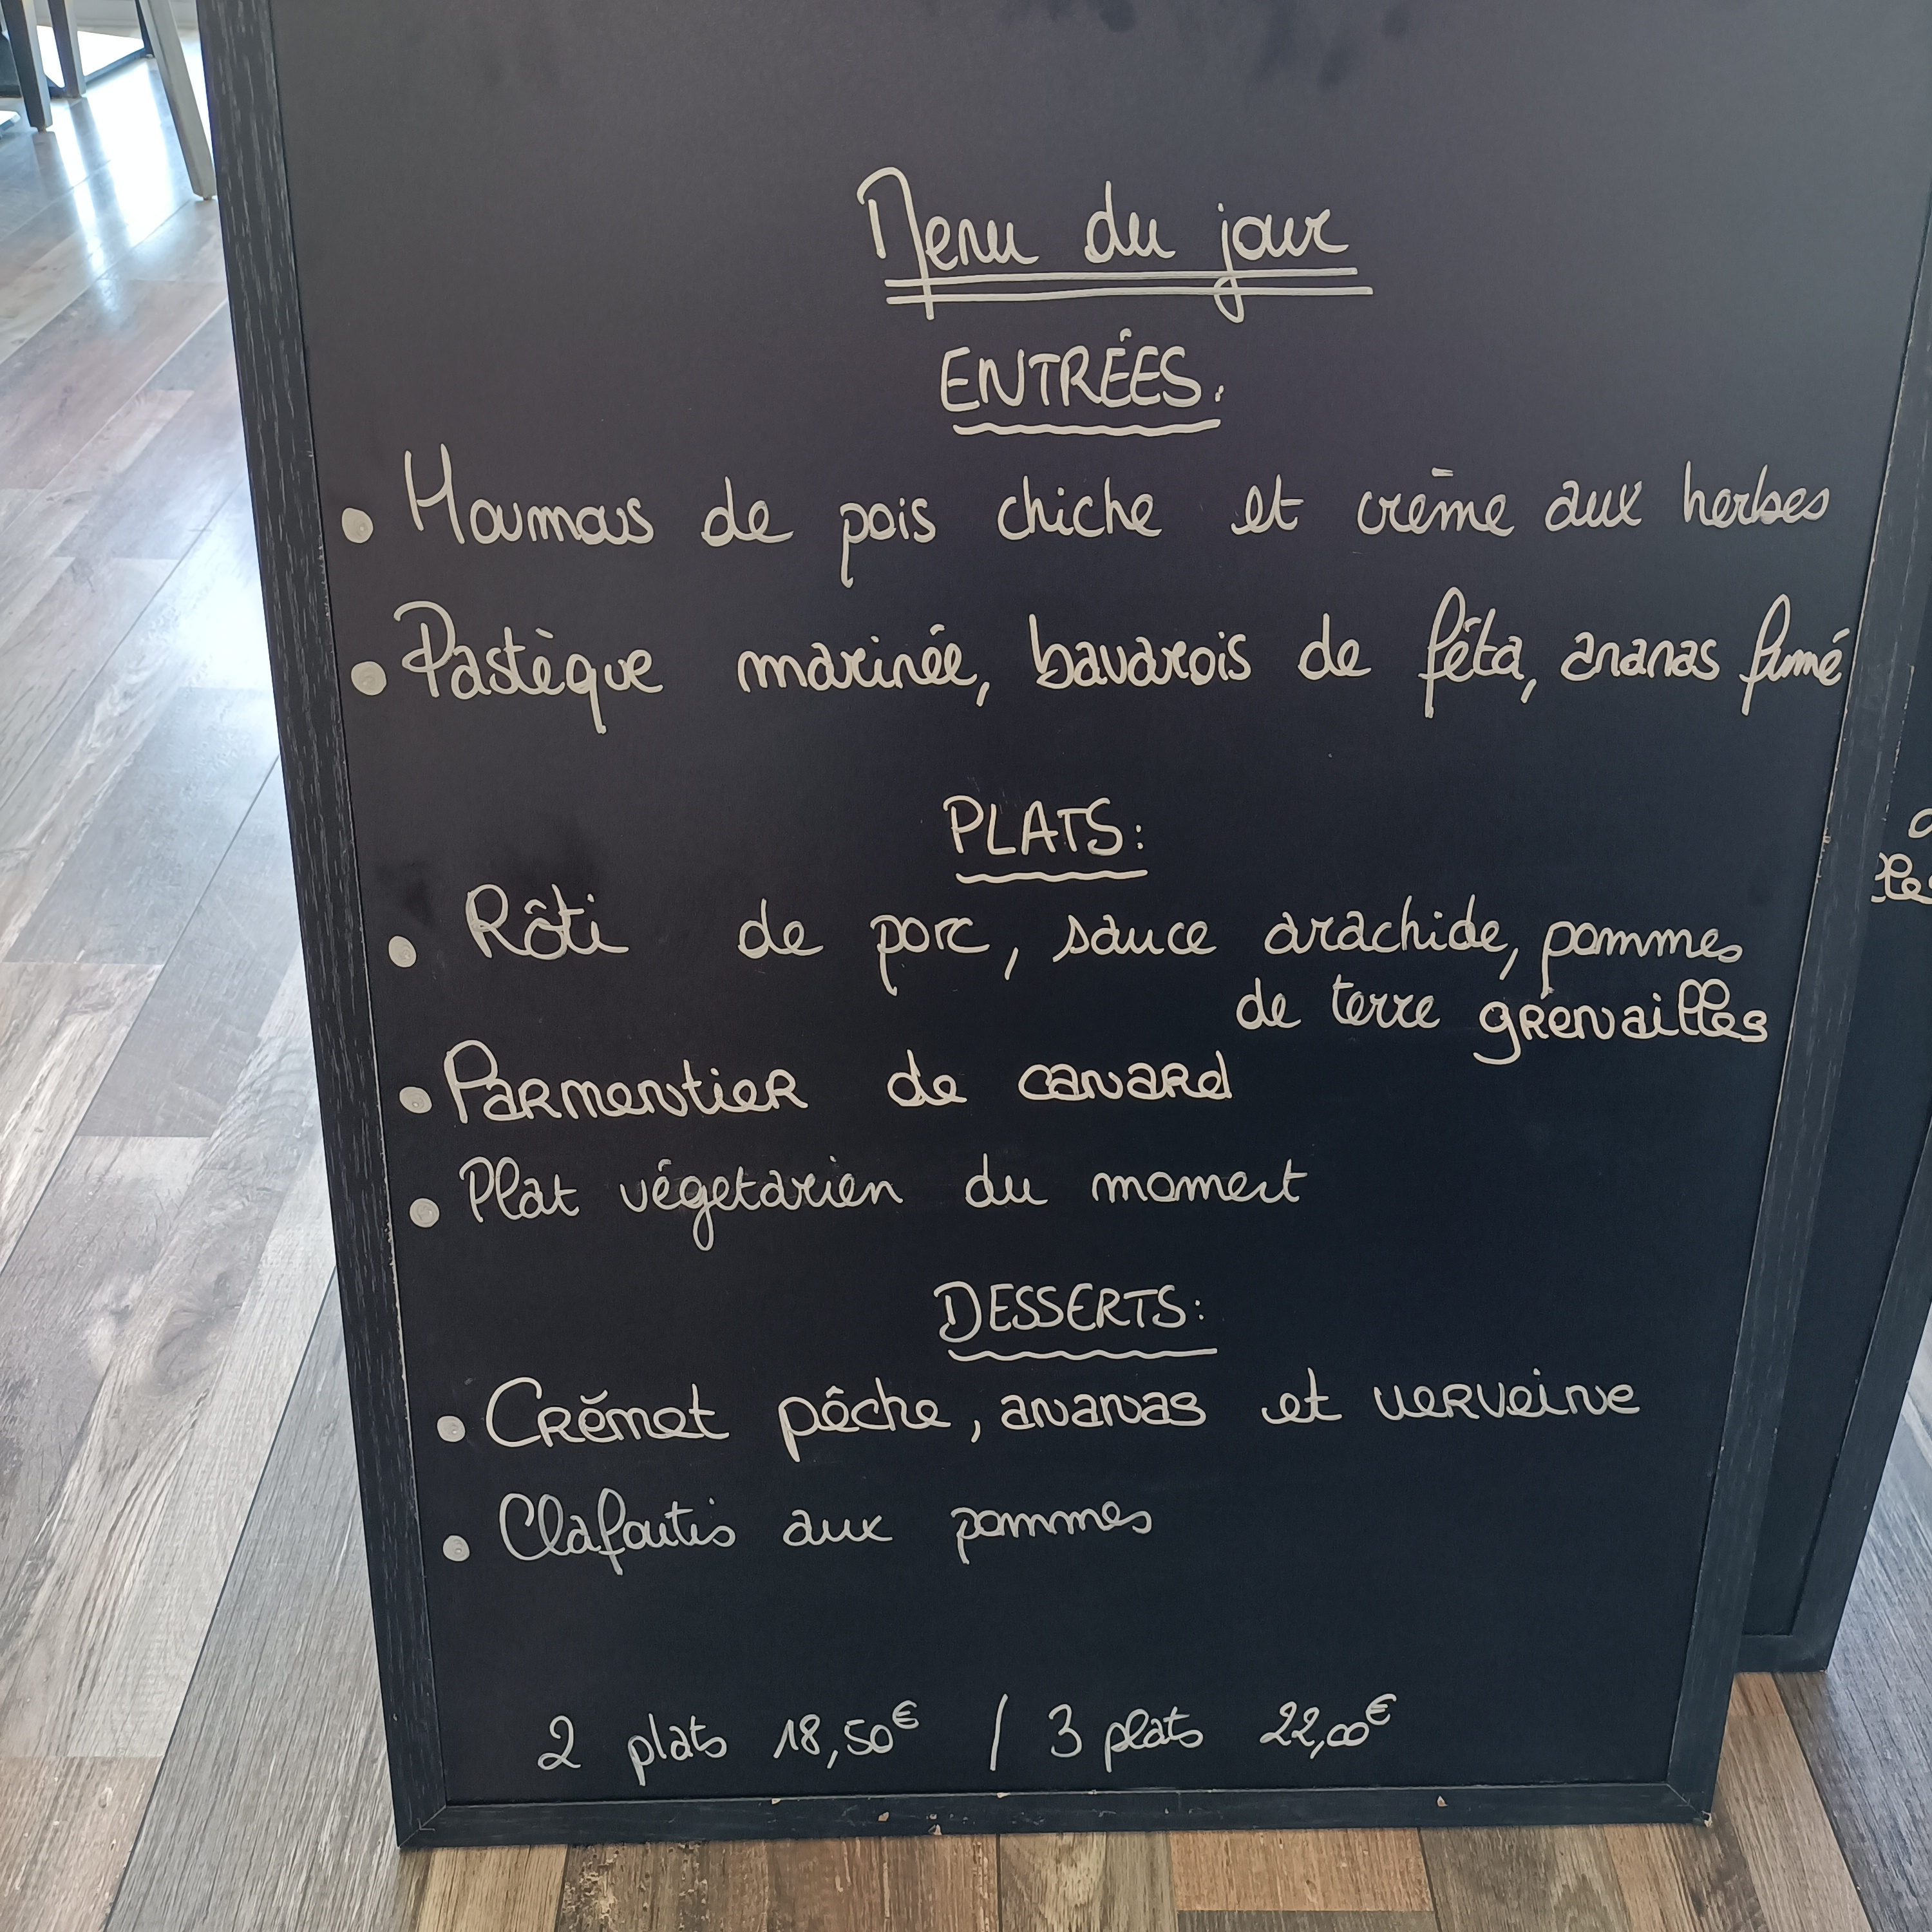 Menu du jour
ENTRÉES.
• Houmous de pois chiche et crème aux herbes
• Pastèque marinée, bavarois de féta, ananas fumé
PLATS:
• Rôti de porc, sauce arachide, pommes
de terre grenailles
• Parmentier de canard
• Plat végetarien du moment
DESSERTS:
• Crémet pêche, ananas et verveine
• Clafoutis aux pommes
2 plats 18,50€ / 3 plats 22,00€